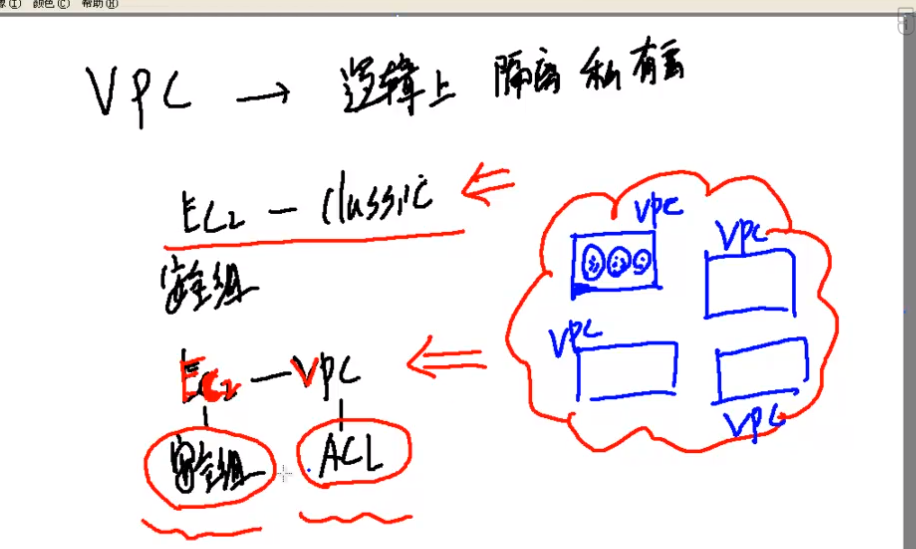 颜色(C) 帮助(H)
VPC → 逻辑上 隔离 私有云
EC2 — Classic
安全组
EC2 — VPC
安全组 ACL
VPC
VPC
VPC
VPC